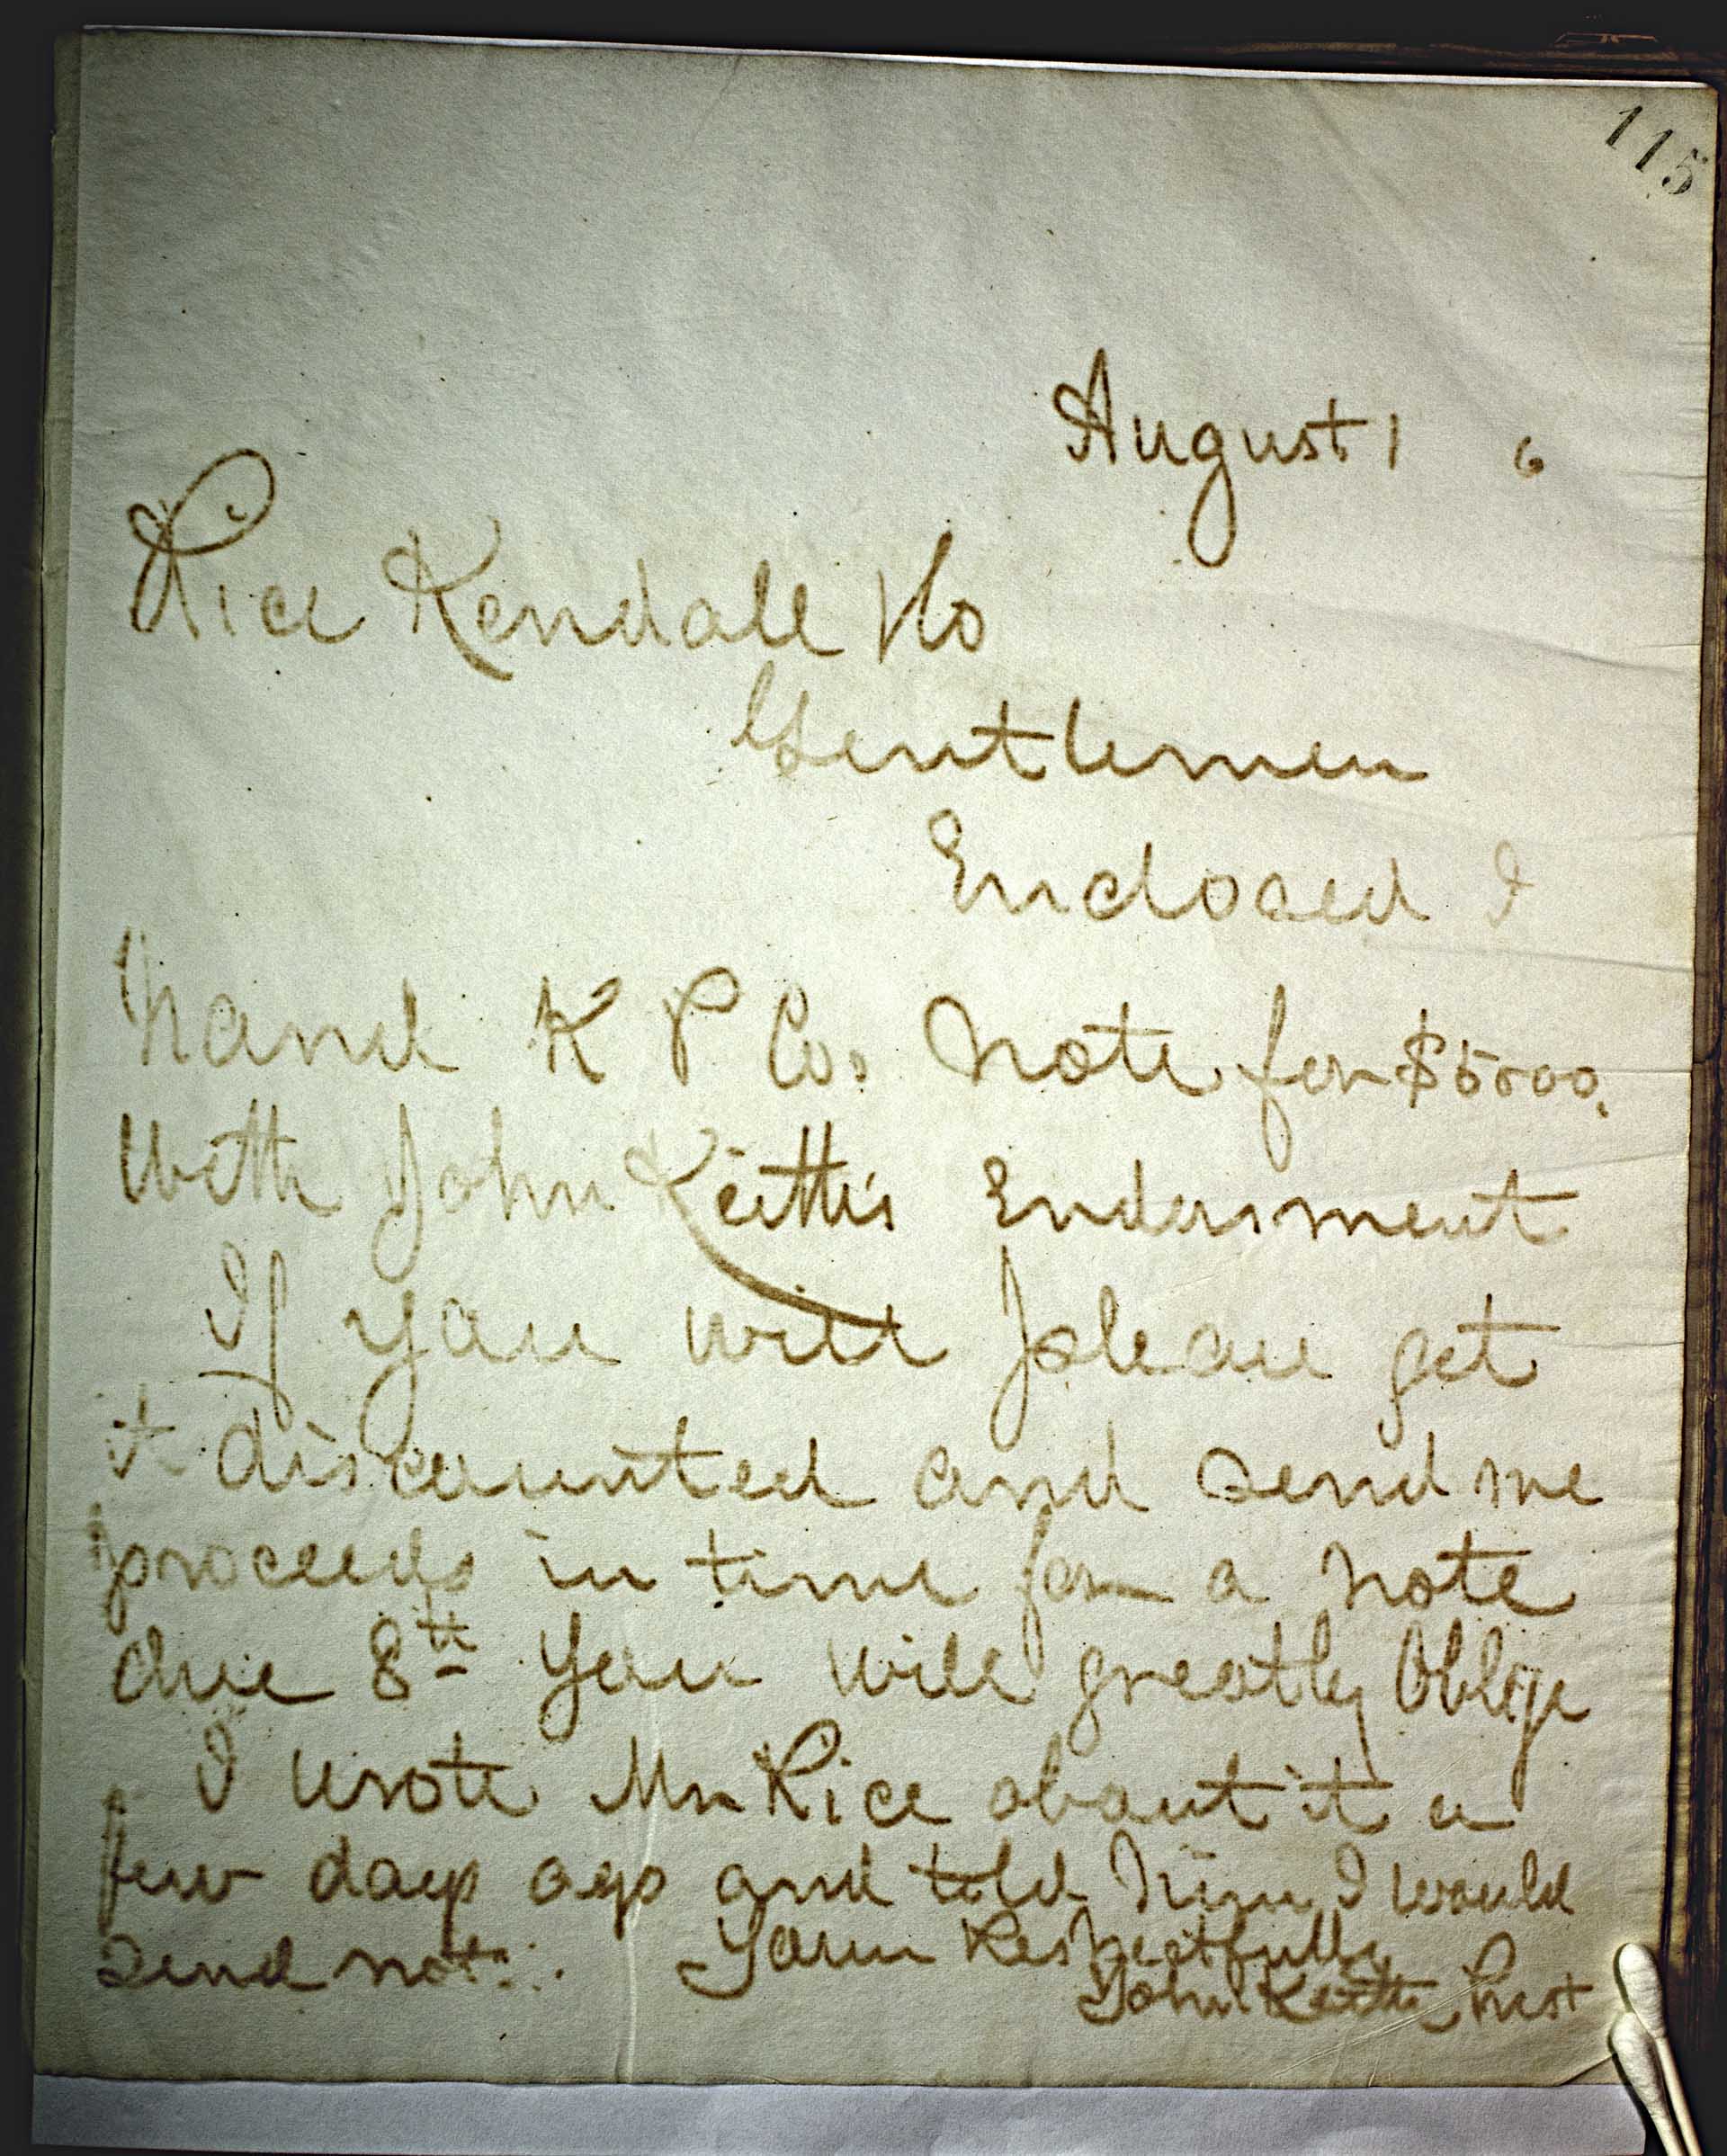 115
August 1 6
Rice Kendall & Co
Gentlemen
Enclosed I
hand K P Co. Note for $5000.
With John Keith's Endorsment
If you will please get
it discounted and send me
proceeds in time for a note
due 8th You will greatly Oblige
I wrote Mr Rice about it a
few days ago and told him I would
send note. Yours Respectfully
John Keith Prest